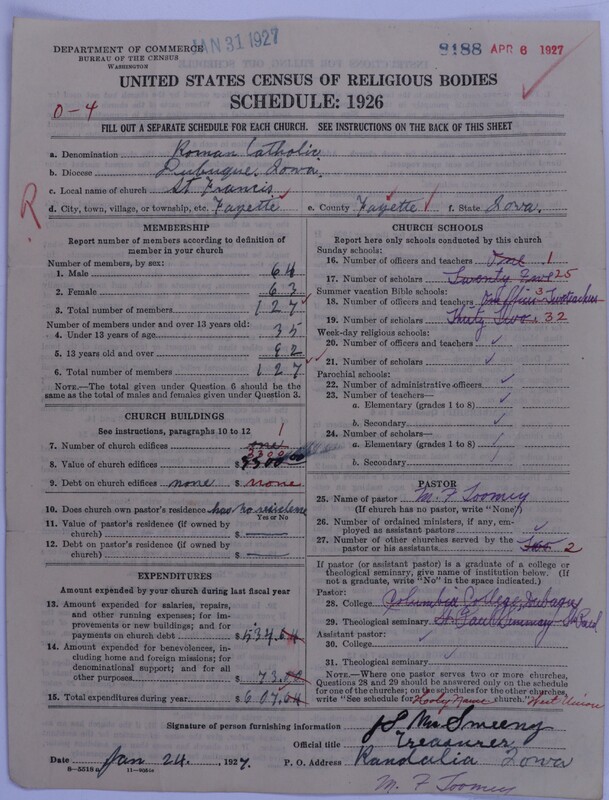 DEPARTMENT OF COMMERCE
BUREAU OF THE CENSUS
WASHINGTON
JAN 31 1927
8188 APR 6 1927
UNITED STATES CENSUS OF RELIGIOUS BODIES
SCHEDULE: 1926
0-4
FILL OUT A SEPARATE SCHEDULE FOR EACH CHURCH. SEE INSTRUCTIONS ON THE BACK OF THIS SHEET
a. Denomination Roman Catholic
b. Diocese Dubuque, Iowa.
c. Local name of church St Francis
d. City, town, village, or township, etc. Fayette e. County Fayette f. State Iowa.
R
MEMBERSHIP
Report number of members according to definition of member in your church
Number of members, by sex:
1. Male 64
2. Female 63
3. Total number of members 127
Number of members under and over 13 years old:
4. Under 13 years of age 35
5. 13 years old and over 92
6. Total number of members 127
NOTE.—The total given under Question 6 should be the same as the total of males and females given under Question 3.
CHURCH BUILDINGS
See instructions, paragraphs 10 to 12
7. Number of church edifices one 1
8. Value of church edifices $ 3300
9. Debt on church edifices none $ none
10. Does church own pastor's residence has no residence
Yes or No
11. Value of pastor's residence (if owned by church) $
12. Debt on pastor's residence (if owned by church) $
EXPENDITURES
Amount expended by your church during last fiscal year
13. Amount expended for salaries, repairs, and other running expenses; for improvements or new buildings; and for payments on church debt $ 534.04
14. Amount expended for benevolences, including home and foreign missions; for denominational support; and for all other purposes 73.00
15. Total expenditures during year $ 607.04
CHURCH SCHOOLS
Report here only schools conducted by this church
Sunday schools:
16. Number of officers and teachers one 1
17. Number of scholars Twenty Five 25
Summer vacation Bible schools: 3
18. Number of officers and teachers One officer Two teachers
19. Number of scholars Thirty Two. 32
Week-day religious schools:
20. Number of officers and teachers
21. Number of scholars
Parochial schools:
22. Number of administrative officers
23. Number of teachers—
a. Elementary (grades 1 to 8)
b. Secondary
24. Number of scholars—
a. Elementary (grades 1 to 8)
b. Secondary
PASTOR
25. Name of pastor M. F Toomey
(If church has no pastor, write "None")
26. Number of ordained ministers, if any, employed as assistant pastors
27. Number of other churches served by the pastor or his assistants Two 2
If pastor (or assistant pastor) is a graduate of a college or theological seminary, give name of institution below. (If not a graduate, write "No" in the space indicated.)
Pastor:
28. College Columbia College, Dubuque
29. Theological seminary St Paul Seminary St Paul
Assistant pastor:
30. College
31. Theological seminary
NOTE.—Where one pastor serves two or more churches, Questions 28 and 29 should be answered only on the schedule for one of the churches; on the schedules for the other churches, write "See schedule for Holy Name church." West Union
Signature of person furnishing information
Official title Treasurer
Date Jan 24, 1927. P. O. Address Randalia Iowa
8-5518 a 11-9084
M. F Toomey